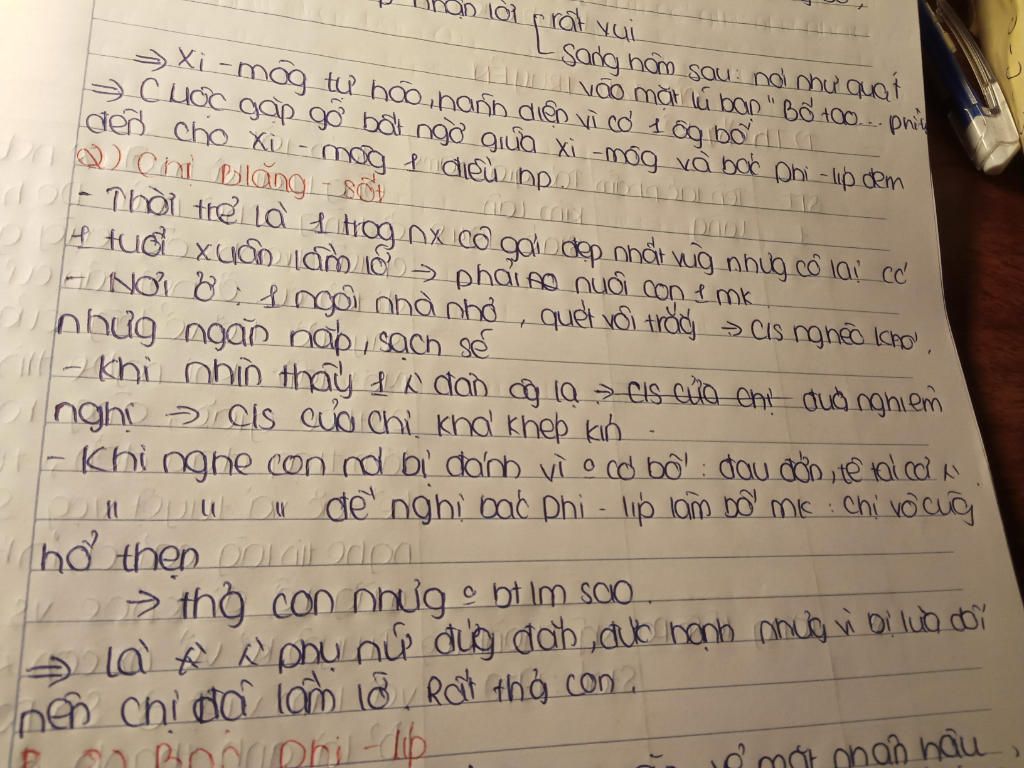 nhận lời rất vui
sáng hôm sau: nói như quát
vào mặt lũ bạn "Bố tao... phi-líp
⇒ Xi-môg tự hào, hãnh diện vì có 1 ôg bố
⇒ Cuộc gặp gỡ bất ngờ giữa xi-môg và bác phi-lip đem
đến cho xi-môg 1 điều hp.
2) Chị Blăng-sốt
- Thời trẻ là 1 trog nx cô gái đẹp nhất vùg nhưg cô lại có
1 tuổi xuân lầm lỡ → phải nuôi con 1 mk
- Nơi ở: 1 ngôi nhà nhỏ, quét vôi trắg → c/s nghèo khó,
nhưg ngăn nắp, sạch sẽ
- Khi nhìn thấy 1 đàn ôg lạ → c/s của chị đưa nghiêm
nghị → c/s của chị khá khép kín.
- Khi nghe con nói bị đánh vì o có bố: đau đớn, tê tái cơ
" " " đề nghị bác phi-lip làm bố mk: chị vô cùg
hổ thẹn
→ thg con nhưg o bt lm sao.
⇒ Là phụ nữ đứg đắn, đức hạnh nhưg vì bị lừa dối
nên chị đã lầm lỡ. Rất thg con.
phi-lip
mặt nhân hậu,